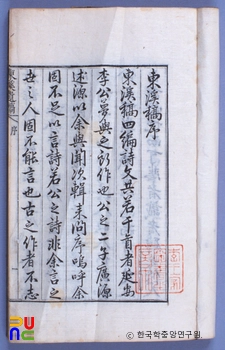 東溪稿序
東溪稿四編詩文共若干首者延安
李公夢與之所作也公之二子廣源
述源以余與聞次輯來問序嗚呼余
固不足以言詩若公之詩非余言之
世之人固不能言也古之作者不志
序
一
ⓒ 한국학중앙연구원